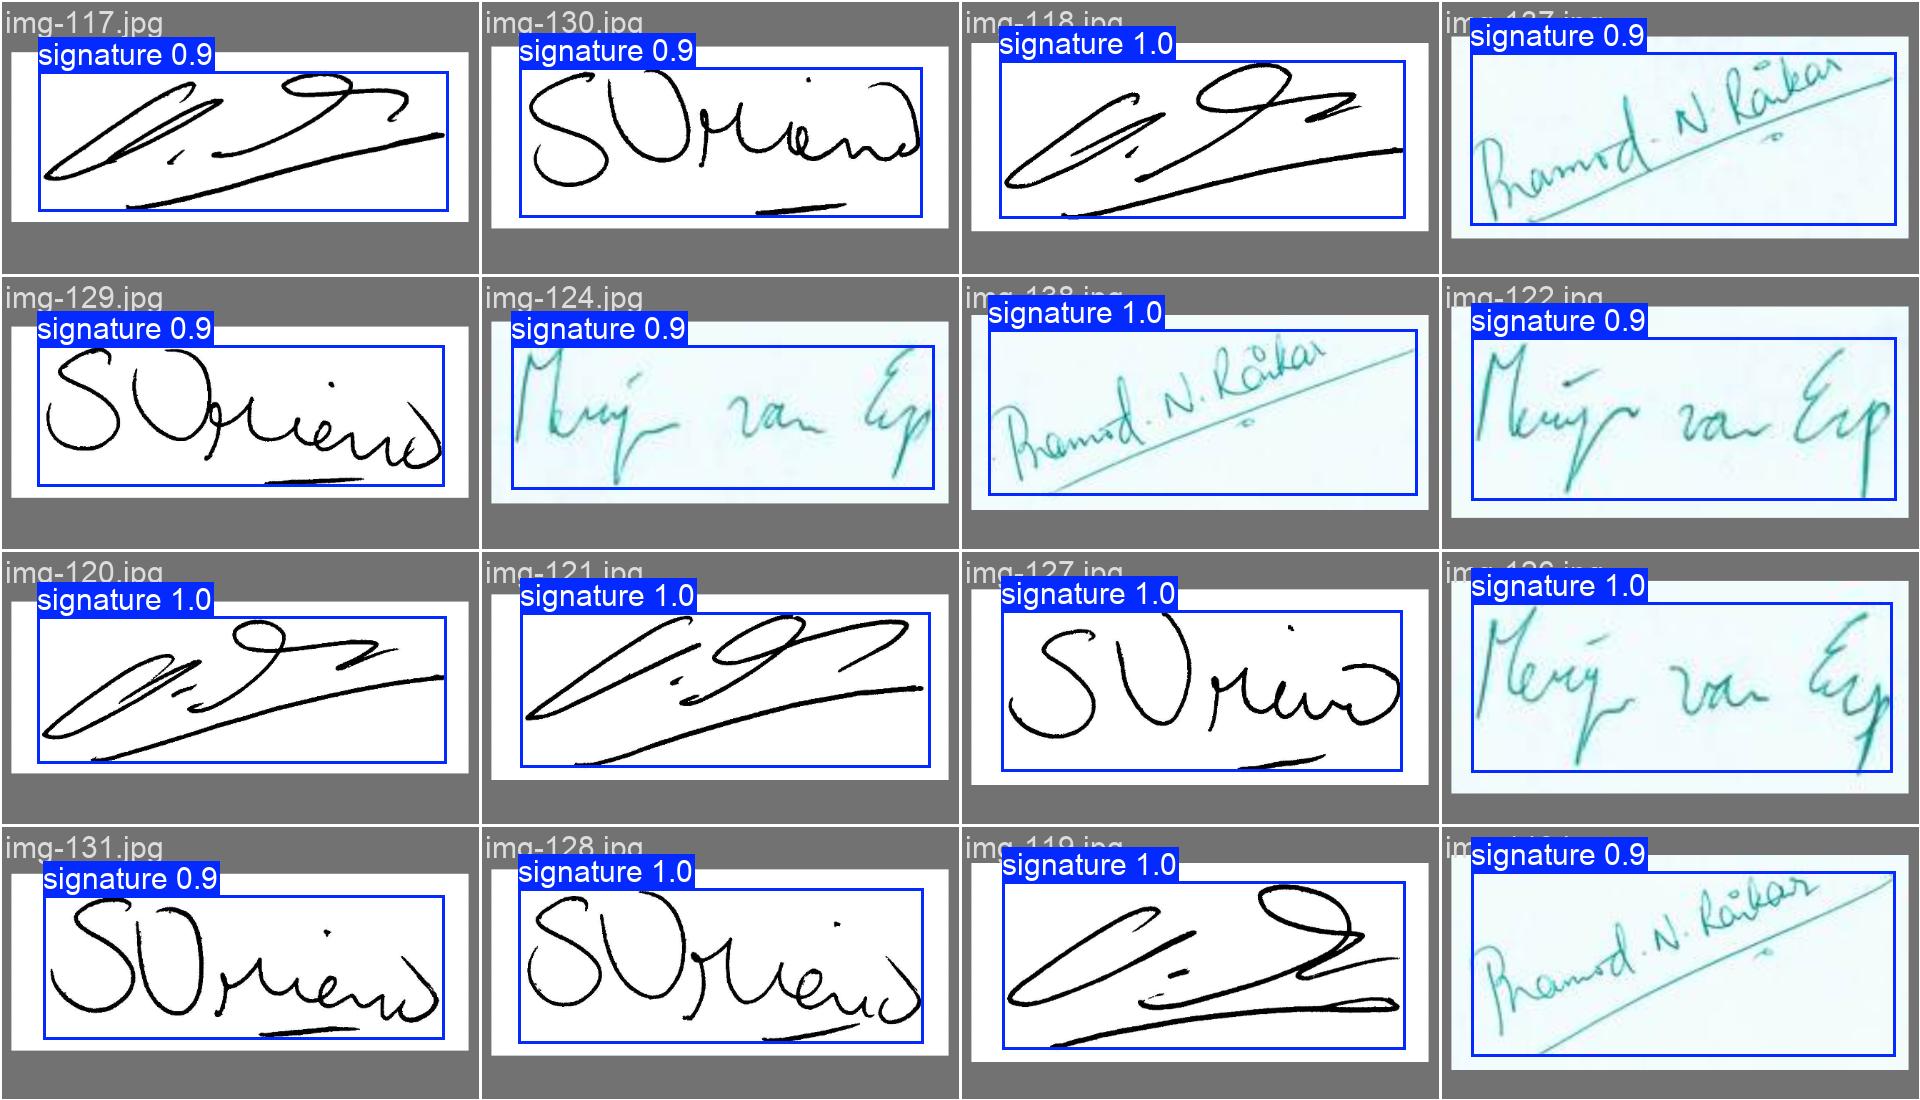 img-117.jpg
signature 0.9
img-130.jpg
signature 0.9
SVriend
img-118.jpg
signature 1.0
signature 0.9
Pramod. N. Råikar
img-129.jpg
signature 0.9
SVriend
img-124.jpg
signature 0.9
Merijn van Erp
img-138.jpg
signature 1.0
Pramod. N. Råikar
img-122.jpg
signature 0.9
Merijn van Erp
img-120.jpg
signature 1.0
img-121.jpg
signature 1.0
img-127.jpg
signature 1.0
SVriend
signature 1.0
Merijn van Erp
img-131.jpg
signature 0.9
SVriend
img-128.jpg
signature 1.0
SVriend
img-119.jpg
signature 1.0
signature 0.9
Pramod. N. Råikar